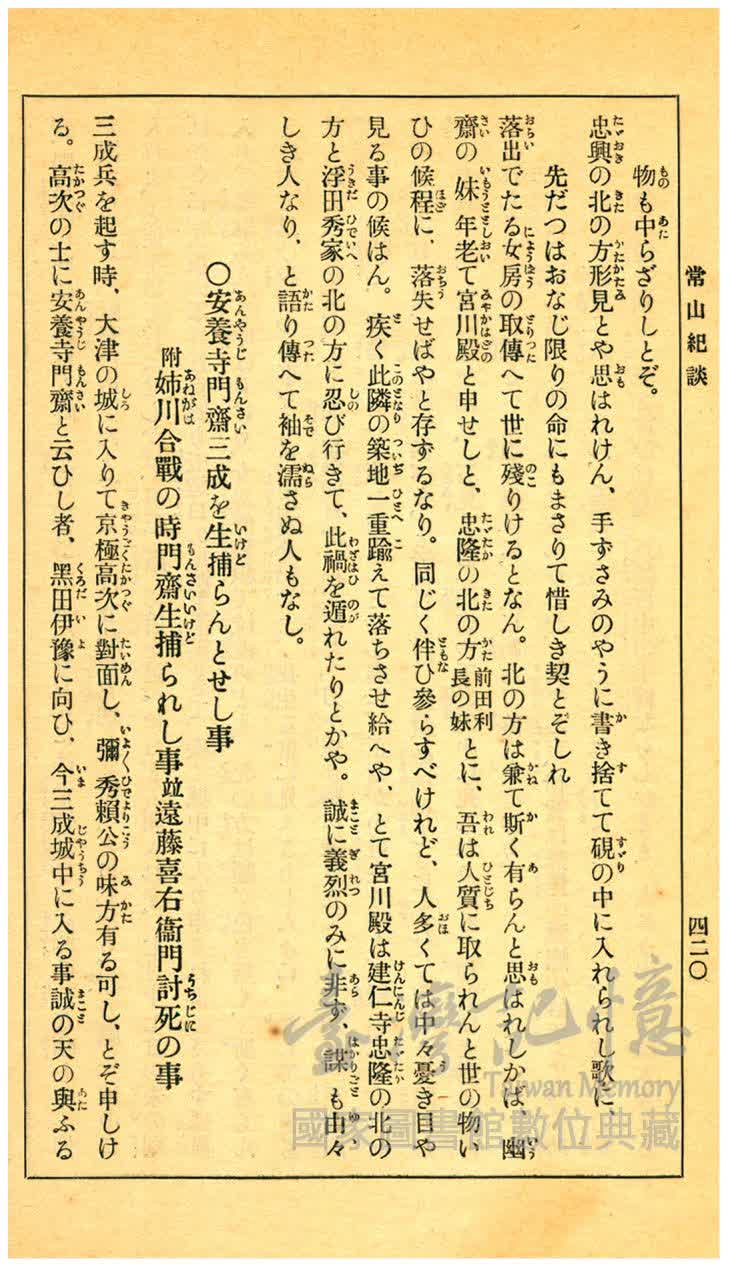 常山紀談
四二〇
物も中らざりしとぞ。
忠興の北の方形見とや思はれけん、手ずさみのやうに書き捨てて硯の中に入れられし歌に、
先だつはおなじ限りの命にもまさりて惜しき契とぞしれ
落出でたる女房の取傳へて世に殘りけるとなん。北の方は兼て斯く有らんと思はれしかば、幽
齋の妹年老て宮川殿と申せしと、忠隆の北の方前田利長の妹とに、吾は人質に取られんと世の物い
ひの候程に、落失せばやと存ずるなり。同じく伴ひ參らすべけれど、人多くては中々憂き目や
見る事の候はん。疾く此隣の築地一重踰えて落ちさせ給へや、とて宮川殿は建仁寺忠隆の北の
方と浮田秀家の北の方に忍び行きて、此禍を遁れたりとかや。誠に義烈のみに非ず、謀も由々
しき人なり、と語り傳へて袖を濡さぬ人もなし。
〇安養寺門齋三成を生捕らんとせし事
附姉川合戰の時門齋生捕られし事竝遠藤喜右衞門討死の事
三成兵を起す時、大津の城に入りて京極高次に對面し、彌秀賴公の味方有る可し、とぞ申しけ
る。高次の士に安養寺門齋と云ひし者、黑田伊豫に向ひ、今三成城中に入る事誠の天の與ふる
臺灣記憶
Taiwan Memory
國家圖書館數位典藏